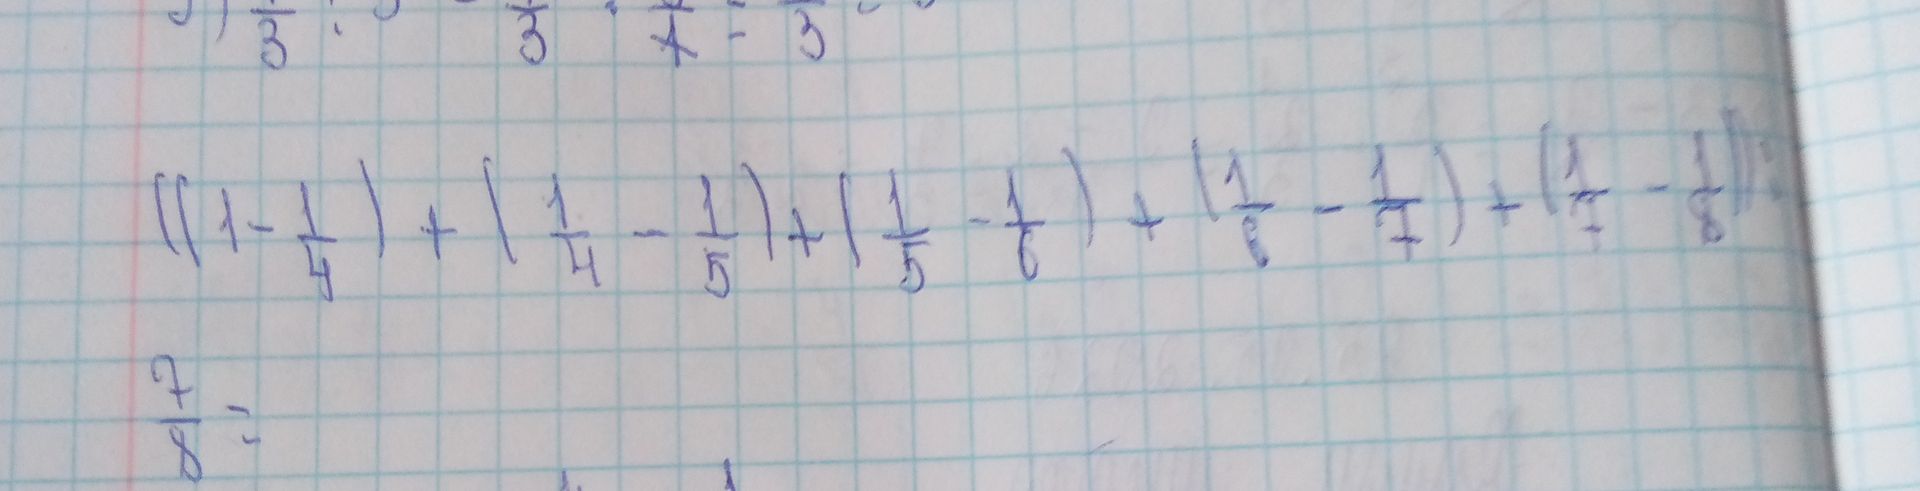 ((1 - 1/4) + (1/4 - 1/5) + (1/5 - 1/6) + (1/6 - 1/7) + (1/7 - 1/8)) :
7/8 =